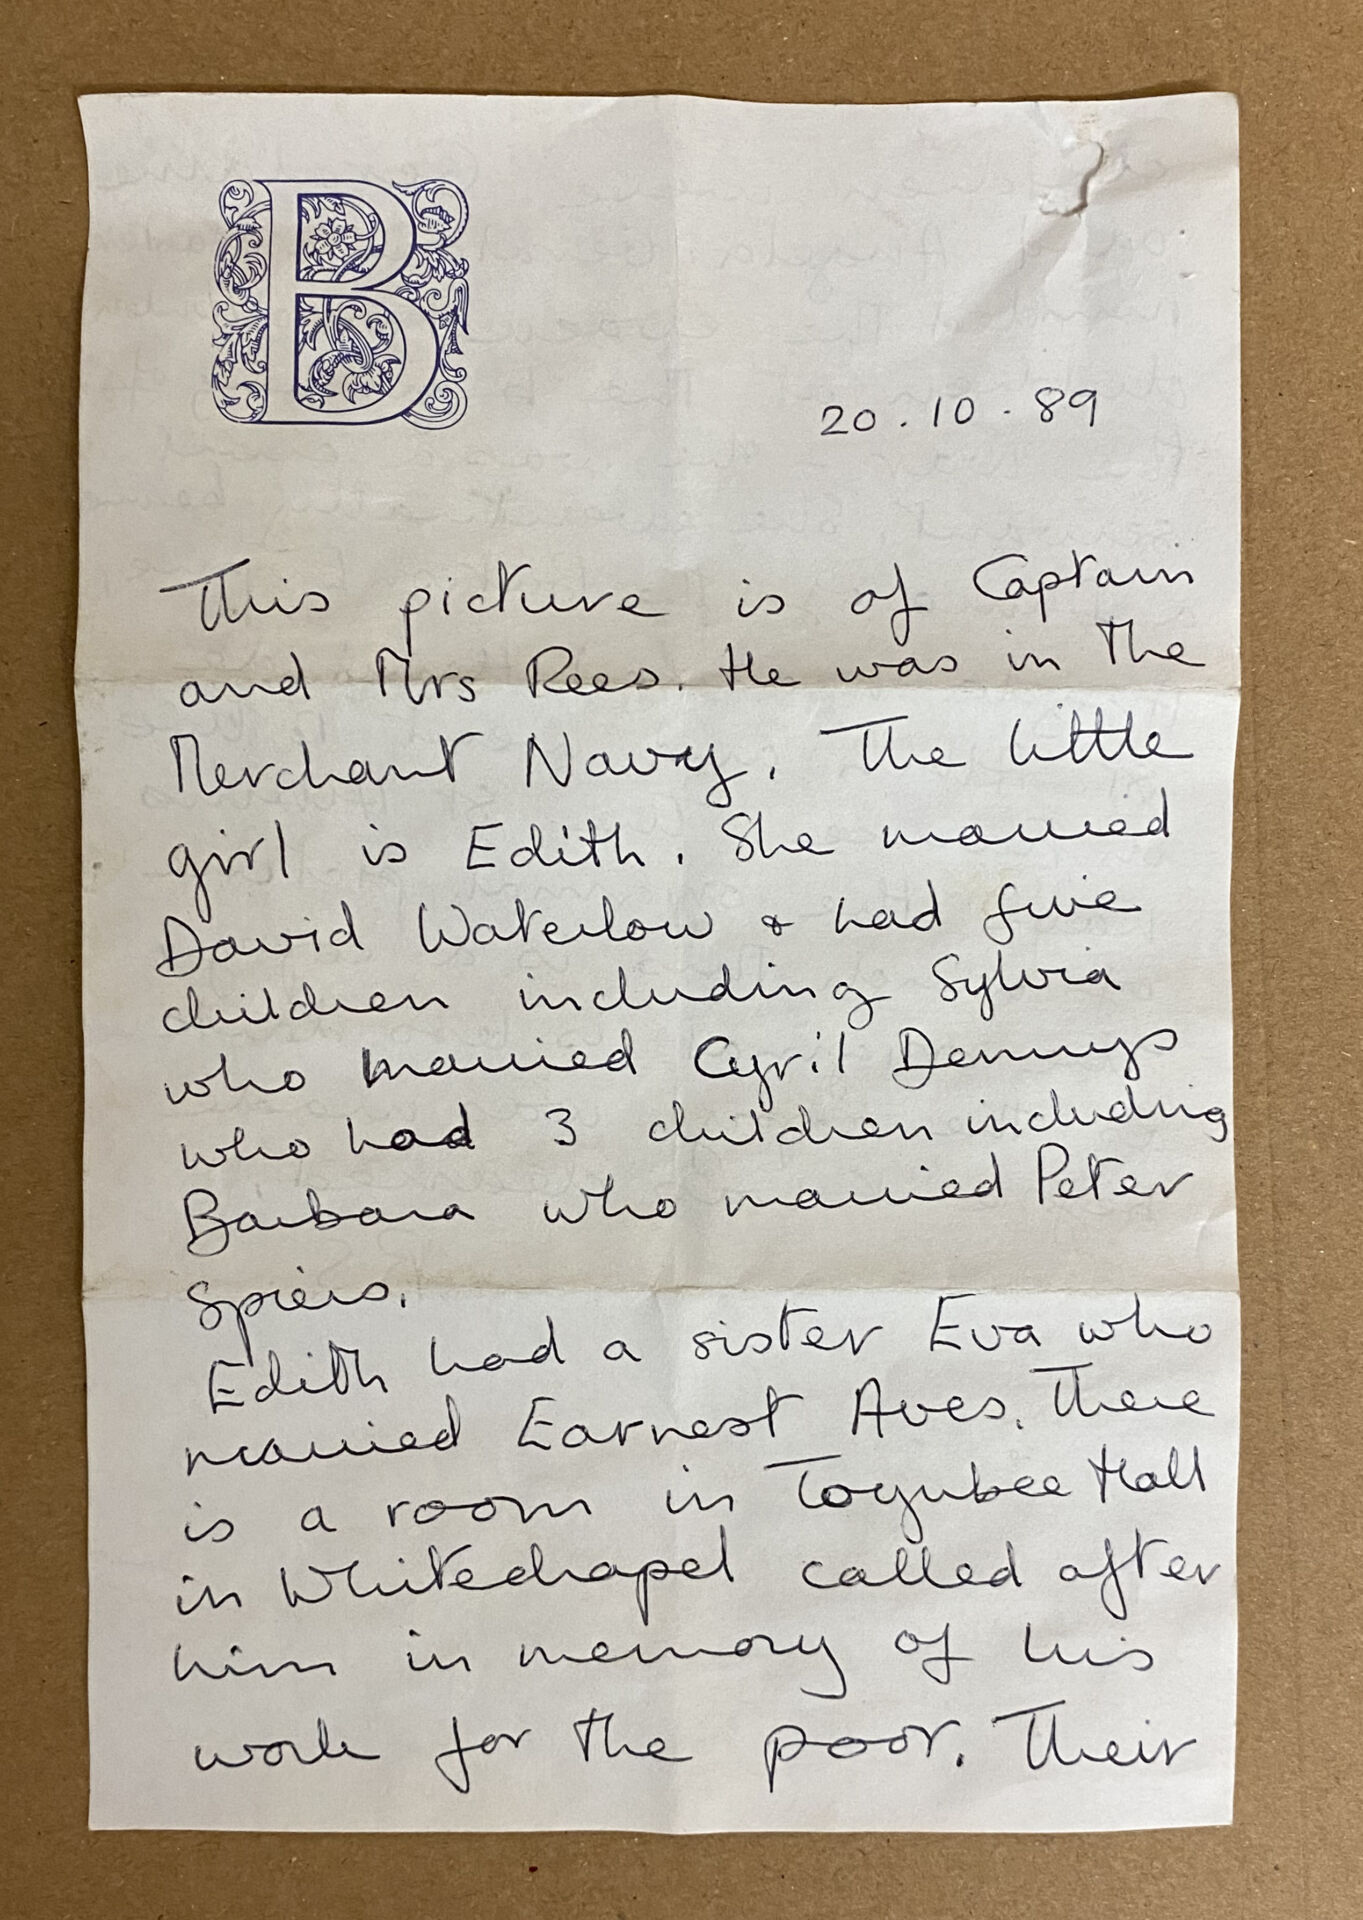 B
20.10.89
This picture is of Captain
and Mrs Rees. He was in the
Merchant Navy. The little
girl is Edith. She married
David Waterlow & had five
children including Sylvia
who married Cyril Dennys
who had 3 children including
Barbara who married Peter
Spiers.
Edith had a sister Eva who
married Earnest Aves. There
is a room in Toynbee Hall
in Whitechapel called after
him in memory of his
work for the poor. Their